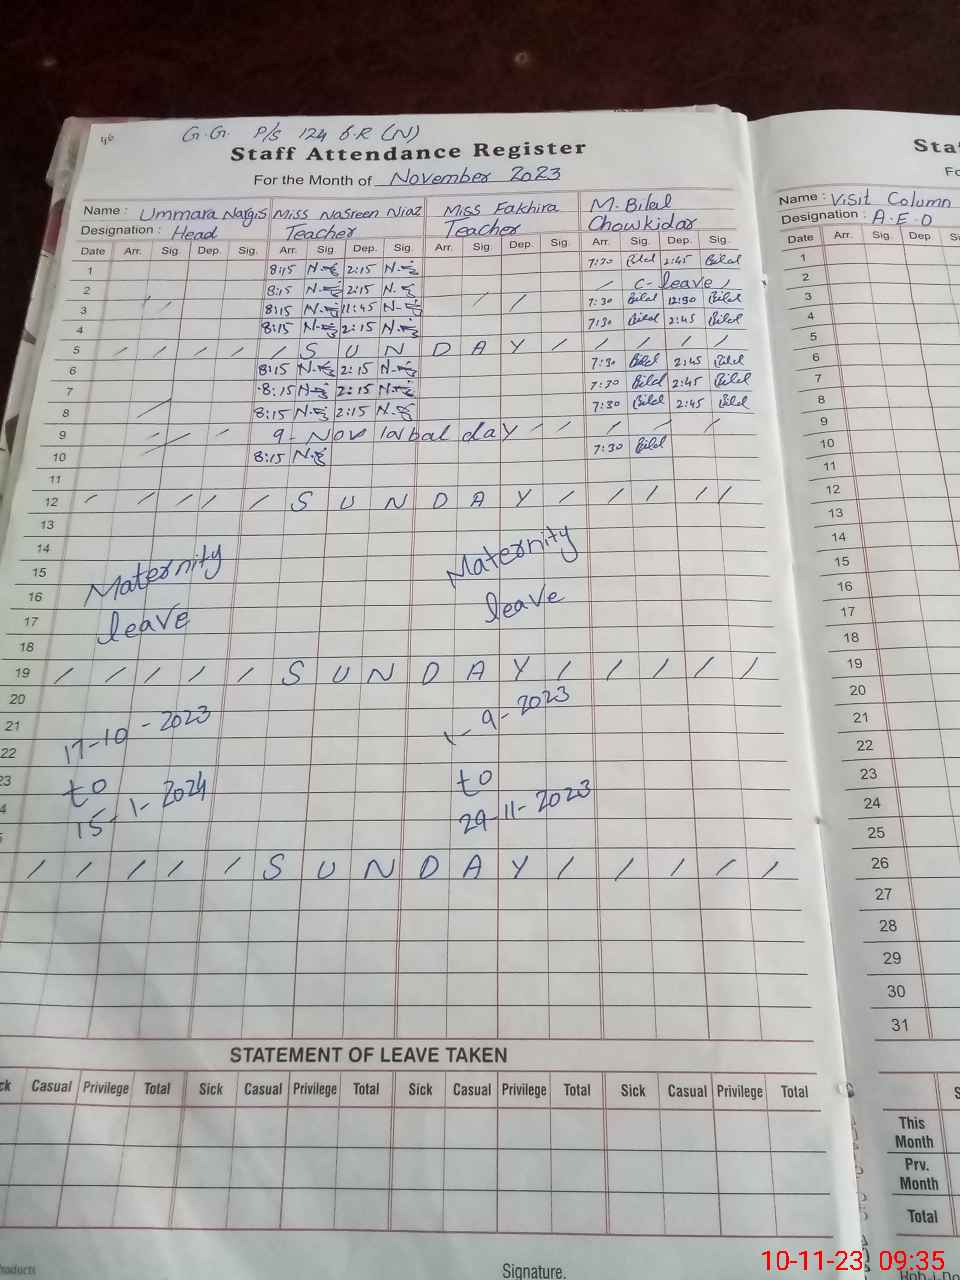 46
G.G. P/S 124 6.R (N)
Staff Attendance Register
For the Month of November 2023
Name : Ummara Nargis Miss Nasreen Niaz Miss Fakhira M. Bilal
Designation : Head Teacher Teacher Chowkidar
Date Arr. Sig. Dep. Sig. Arr. Sig. Dep. Sig. Arr. Sig. Dep. Sig. Arr. Sig. Dep. Sig.
1 8:15 2:15 7:30 Bilal 2:45 Bilal
2 8:15 2:15 / C-leave /
3 / / 8:15 11:45 / / 7:30 Bilal 12:30 Bilal
4 8:15 2:15 7:30 Bilal 2:45 Bilal
5 / / / / / S U N D A Y / / / / /
6 8:15 2:15 7:30 Bilal 2:45 Bilal
7 8:15 2:15 7:30 Bilal 2:45 Bilal
8 / 8:15 2:15 7:30 Bilal 2:45 Bilal
9 / / / 9-Nov Iqbal day / / / / /
10 8:15 7:30 Bilal
11
12 / / / / / S U N D A Y / / / / /
13
14
15 Maternity Maternity
16
17 leave leave
18
19 / / / / / S U N D A Y / / / / /
20
21 17-10-2023 1-9-2023
22
23 to to
15-1-2024 29-11-2023
/ / / / / S U N D A Y / / / / /
STATEMENT OF LEAVE TAKEN
Casual Privilege Total Sick Casual Privilege Total Sick Casual Privilege Total Sick Casual Privilege Total
Signature.
Name : Visit Column
Designation : A.E.O
Date Arr. Sig. Dep. Sig
1
2
3
4
5
6
7
8
9
10
11
12
13
14
15
16
17
18
19
20
21
22
23
24
25
26
27
28
29
30
31
This
Month
Prv.
Month
Total
10-11-23, 09:35